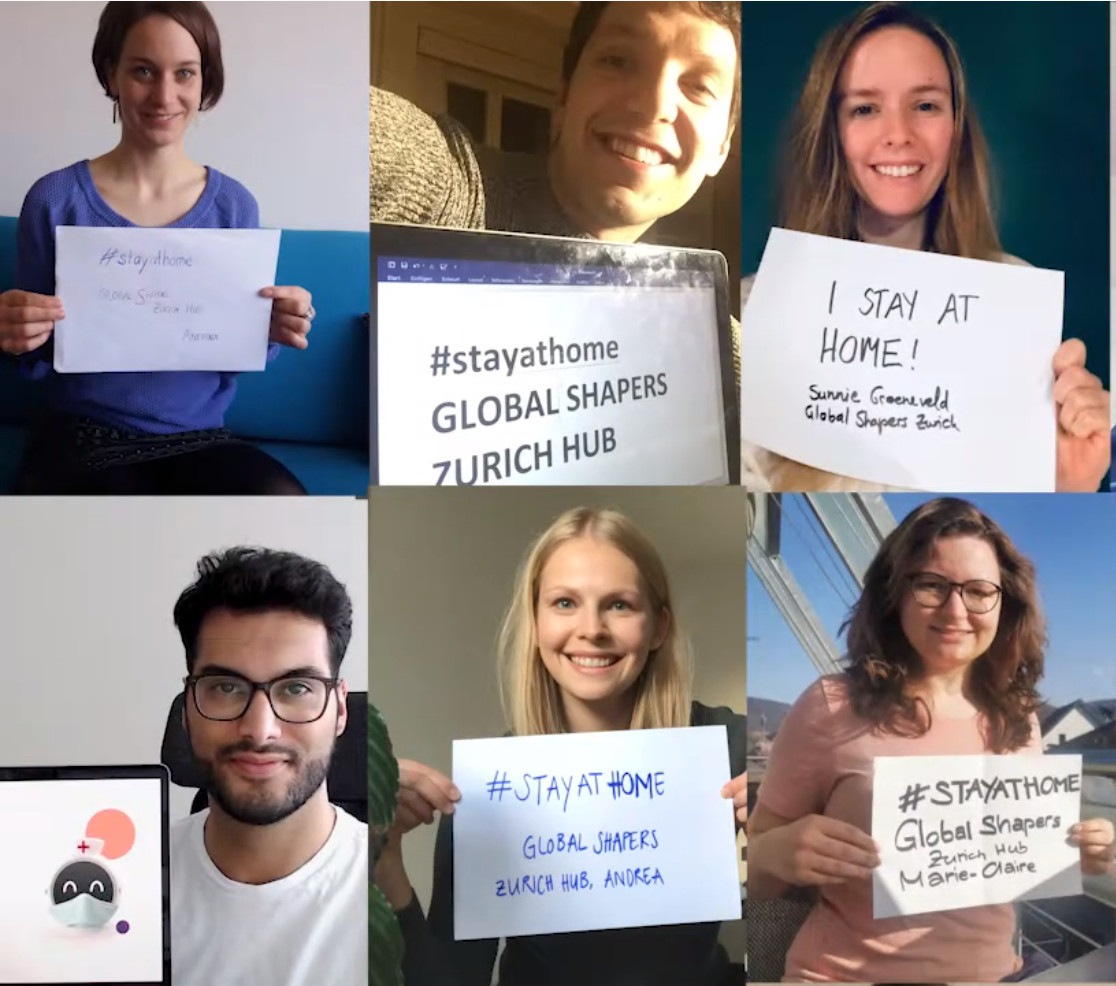 #stayathome
GLOBAL
ZURICH HUB
#stayathome
GLOBAL SHAPERS
ZURICH HUB
I STAY AT
HOME!
Sunnie Groeneveld
Global Shapers Zurich
#STAYATHOME
GLOBAL SHAPERS
ZURICH HUB, ANDREA
#STAYATHOME
Global Shapers
Zurich Hub
Marie-Claire